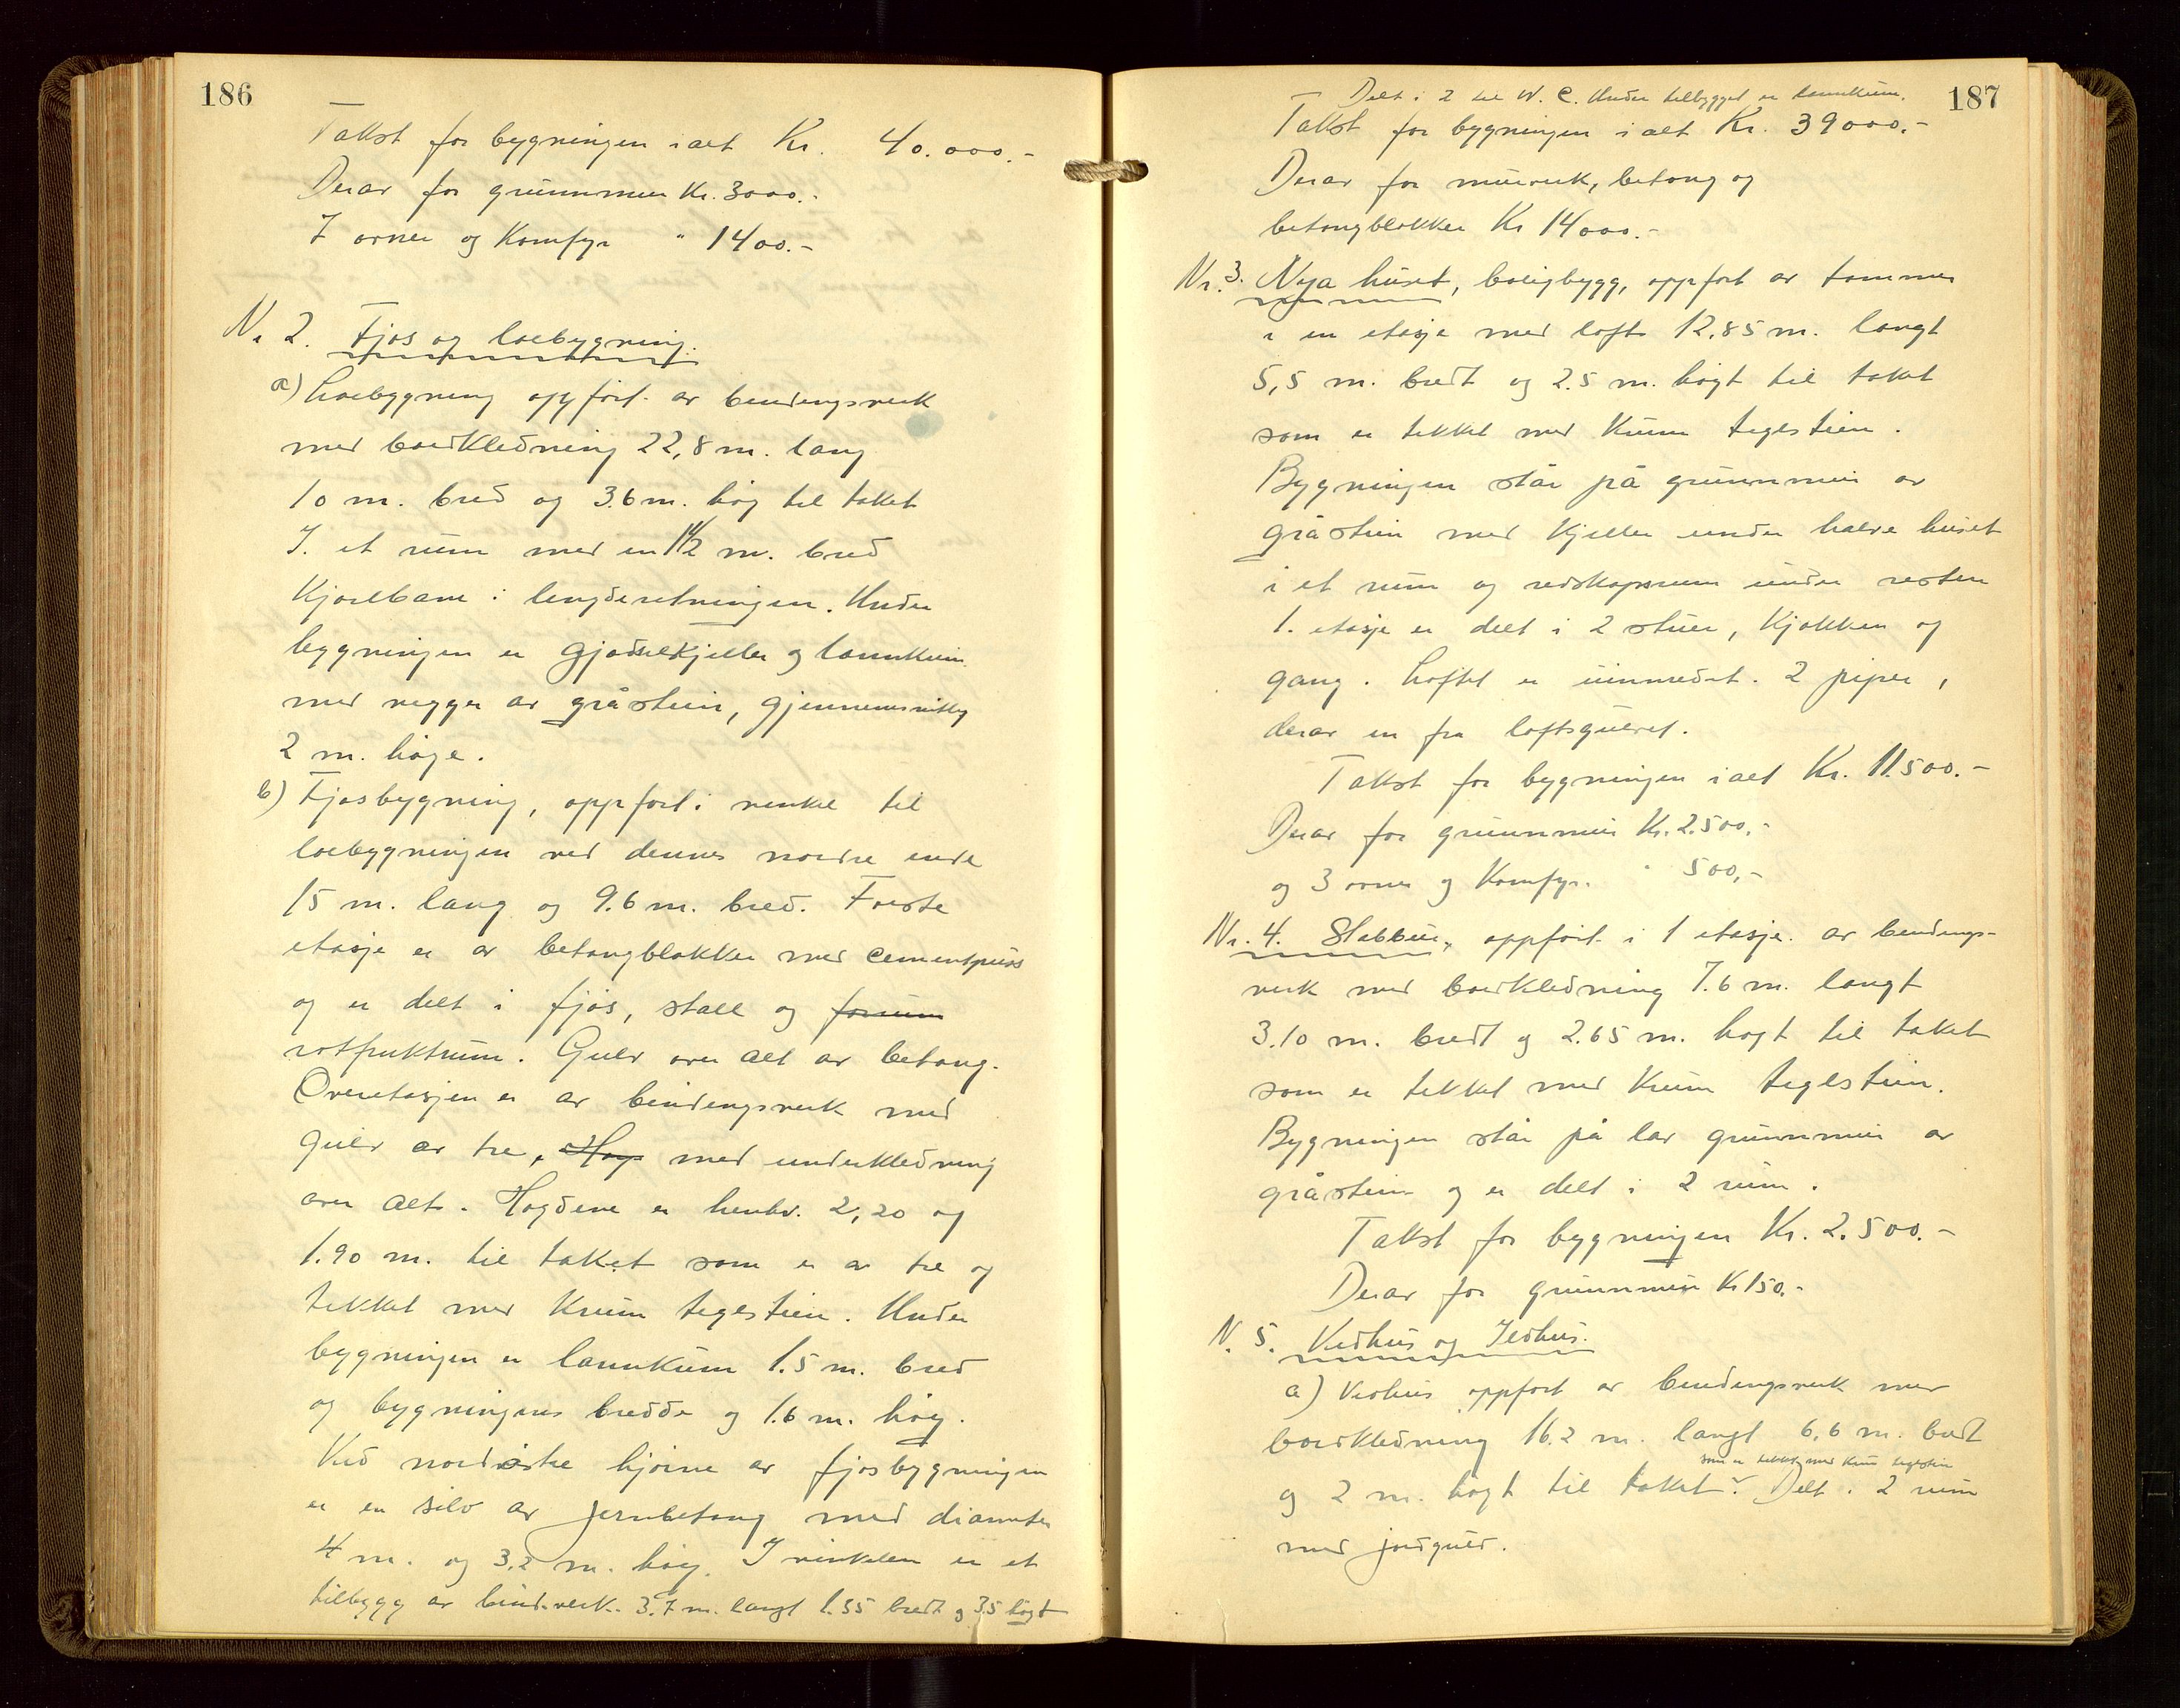 186
Takst for bygningen ialt Kr. 40.000.-
Derav for grunnmur Kr. 3000.-
7 ovner og Komfyr " 1400.-
Nr 2. Fjøs og loebygning.
a) Loebygning oppført av bindingsverk
med bordkledning 22,8 m. lang
10 m. bred og 3.6 m. høg til taket
I. et rum med en 1½ m. bred
Kjørebane i lengderetningen. Under
bygningen er gjødselkjeller og lannkum
med vegger av gråstein, gjennemsnitlig
2 m. høge.
b) Fjøsbygning, oppført i vinkel til
loebygningen ved dennes nordre ende
15 m. lang og 9.6 m. bred. Første
etasje er av betongblokker med cementpuss
og er delt i fjøs, stall og forrum
rotfruktrum. Gulv over alt av betong.
Overetasjen er av bindingsverk med
gulv av tre, Høg med underkledning
over alt. Høgdene er henhv. 2,20 og
1.90 m. til taket som er av tre og
tekket med Krum teglstein. Under
bygningen er lannkum 1.5 m. bred
og bygningens bredde og 1.6 m. høg.
Ved nordøstre hjørne av fjøsbygningen
er en silo av jernbetong med diameter
4 m. og 3,2 m. høg. I vinkelen er et
tilbygg av bind.verk. 3.7 m. langt 1.55 bredt og 3.5 høgt
187
Delt i 2 til W. C. Under tilbygget er lannkum.
Takst for bygningen ialt Kr. 39000.-
Derav for murverk, betong og
betongblokker Kr 14000.-
Nr. 3. Nya huset, boligbygg, oppført av tømmer
i en etasje med loft 12,85 m. langt
5,5 m. bredt og 2.5 m. høgt til taket
som er tekket med Krum teglstein.
Bygningen står på grunnmur av
gråstein med Kjeller under halve huset
i et rum og redskapsrum under resten
1. etasje er delt i 2 stuer, Kjøkken og
gang. Loftet er uinnredet. 2 piper,
derav en fra loftsgulvet.
Takst for bygningen ialt Kr. 11.500.-
Derav for grunnmur Kr. 2.500.-
og 3 ovner og Komfyr. " 500,-
Nr. 4. Stabbur, oppført i 1 etasje. av bindings-
verk med bordkledning 7.6 m. langt
3.10 m. bredt og 2.65 m. høgt til taket
som er tekket med Krum teglstein.
Bygningen står på lav grunnmur av
gråstein og er delt i 2 rum.
Takst for bygningen Kr. 2.500.-
Derav for grunnmur Kr 150.-
N. 5. Vedhus og Ildhus.
a) Vedhus oppført av bindingsverk med
bordkledning 16.2 m. langt 6,6 m. bredt
som er tekket med Krum teglstein
og 2 m. høgt til taket. Delt i 2 rum
med jordgulv.